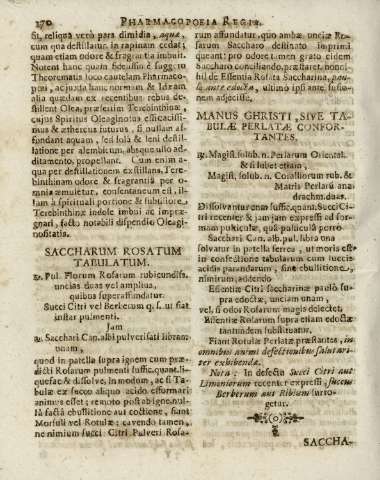 170 PHARMACOPOEIA REGIA.
sit, reliqua verò pars dimidia, aquæ,
cum qua destillatur, in rapinam cedat;
quam etiam odore & fragrantia imbuit.
Notent hanc quam fidissimè suggero
Theorematis loco cautelam Pharmaco-
poei, ac juxta hanc normam & Ideam
alia quædam ex recentibus rebus de-
stillent Olea, præsertim Terebinthinæ;
cujus Spiritus Oleaginosus efficacissi-
mus & æthereus futurus, si nullam af-
fondant aquam, sed solâ & leni destil-
latione per alembicum, absque ullo ad-
ditamento, propellant. Cum enim a-
qua per destillationem exstillans, Tere-
binthinam odore & fragrantiâ per om-
nia æmuletur, consentaneum est, il-
lam à spirituali portione & subtiliore
Terebinthinæ indole imbui ac impræ-
gnari, facto notabili dispendio Oleagi-
nositatis.
SACCHARUM ROSATUM
TABULATUM.
℞. Pul. Florum Rosarum rubicundiss.
uncias duas vel amplius,
quibus superaffundatur
Succi Citri vel Berberum q. s. ut fiat
instar pulmenti.
Jam
℞. Sacchari Can. albi pulverisati libram
unam,
quod in patella supra ignem cum præ-
dicti Rosarum pulmenti suffic. quant. li-
quefac & dissolve. In modum, ac si Ta-
bulæ ex succo aliquo acido efformari
animus esset; remoto post ab igne, nul-
lâ factâ ebullitione aut coctione, fiant
Morsuli vel Rotulæ: cavendo tamen,
ne nimium succi Citri Pulveri Rosa-
rum affundatur, quo ambæ unciæ Ro-
sarum Saccharo destinato imprimi
queant; pro odore t. men grato eidem
Saccharo conciliando, præstaret, nonni-
hil de Essentia Rosata Saccharina, pau-
lo ante edocta, ultimò ipsi ante fusio-
nem adjecisse.
MANUS CHRISTI, SIVE TA-
BULÆ PERLATÆ CONFOR-
TANTES.
℞. Magist. solub. n. Perlarum Oriental.
& si lubet etiam,
Magist. solub. n. Corallorum rub. &
Matris Perlarũ ana
drachm. duas.
Dissolvantur cum suffic. quant. Succi Ci-
tri recenter & jam jam expressi ad for-
mam pulticulæ, quâ pulticulâ porro
Sacchari Can. alb. pul. libra una
solvatur in patella ferrea, ut moris est
in confectione tabularum cum succis
acidis parandarum, sine ebullitione,
nimirum, addendo
Essentiæ Citri saccharinæ paulò su-
pra edoctæ, unciam unam,
vel, si odor Rosarum magis delectet,
Essentiæ Rosarum supra etiam edoctæ
tantundem substituatur.
Fiant Rotulæ Perlatæ præstantes, in
omnibus animi defectionibus salutari-
ter exhibendæ.
Nota: In defectu Succi Citri aut
Limoniorum recenter expressi, succus
Berberum aut Ribium surro-
getur.
SACCHA-